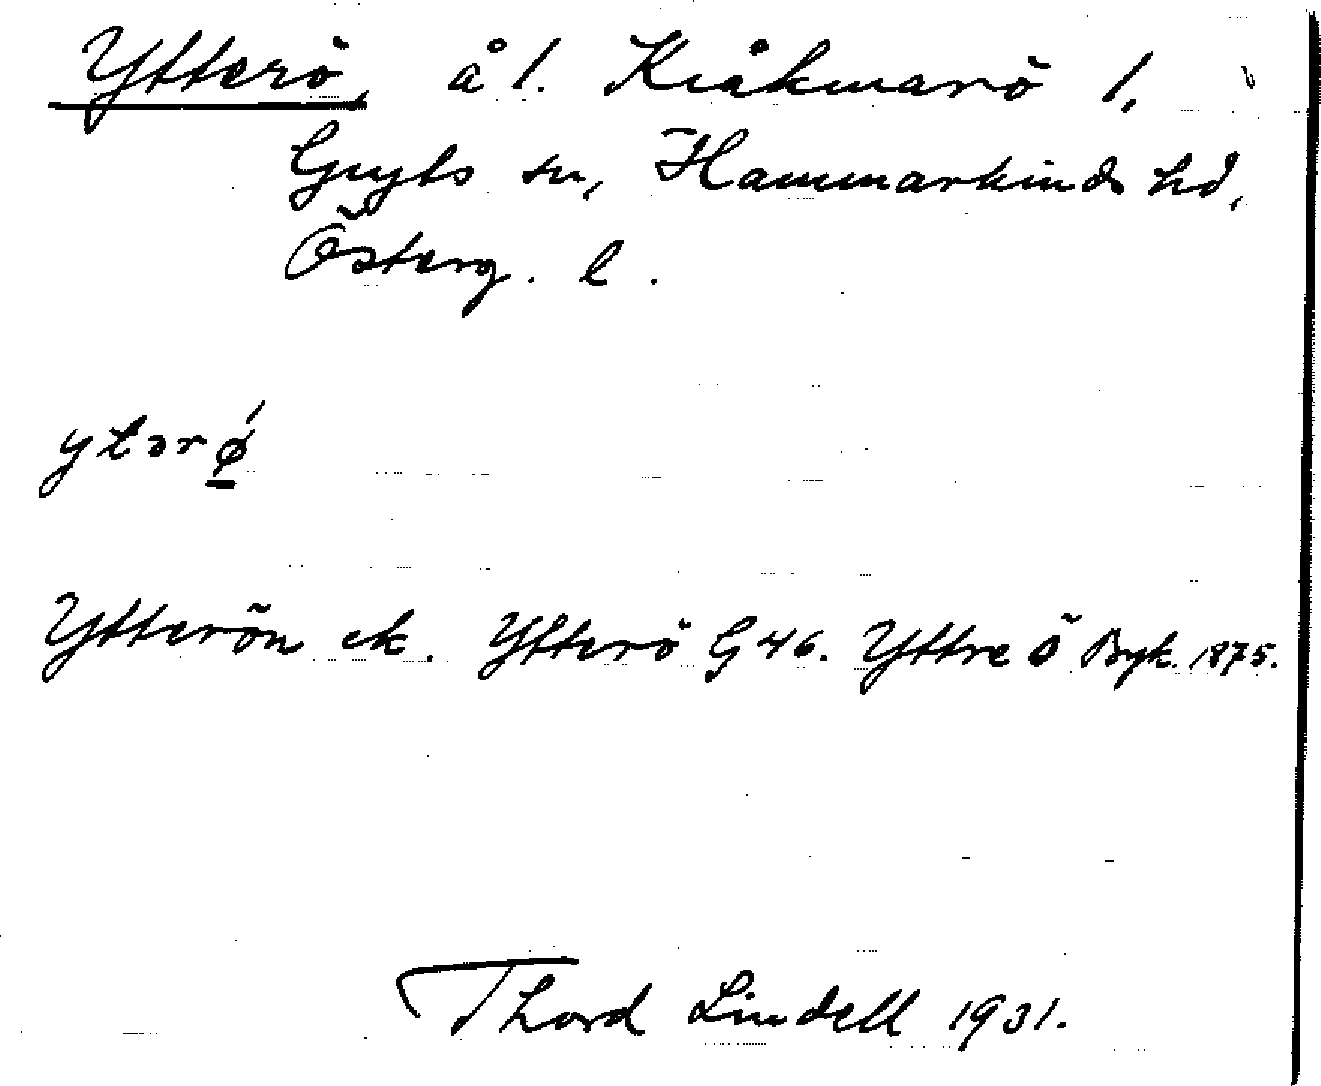 Ytterö, å 1. Kråkmarö 1,
Gryts sn, Hammarkinds hd,
Österg. l.
ytərǿ
Ytterön ek. Ytterö G 46. Yttre Ö Byk. 1875.
Thord Lindell 1931.